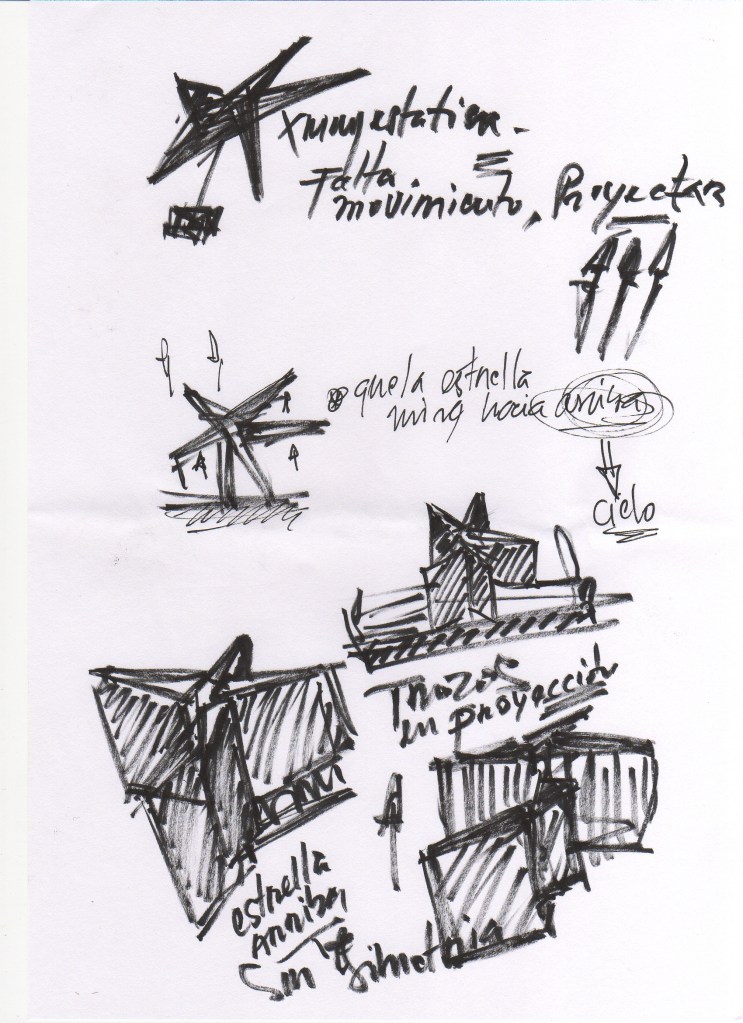 X muy estatica -
Falta
movimiento, Proyectar
que la estrella
mira hacia arriba
cielo
Trazos
en proyección
estrella
arriba
Sin Simetria